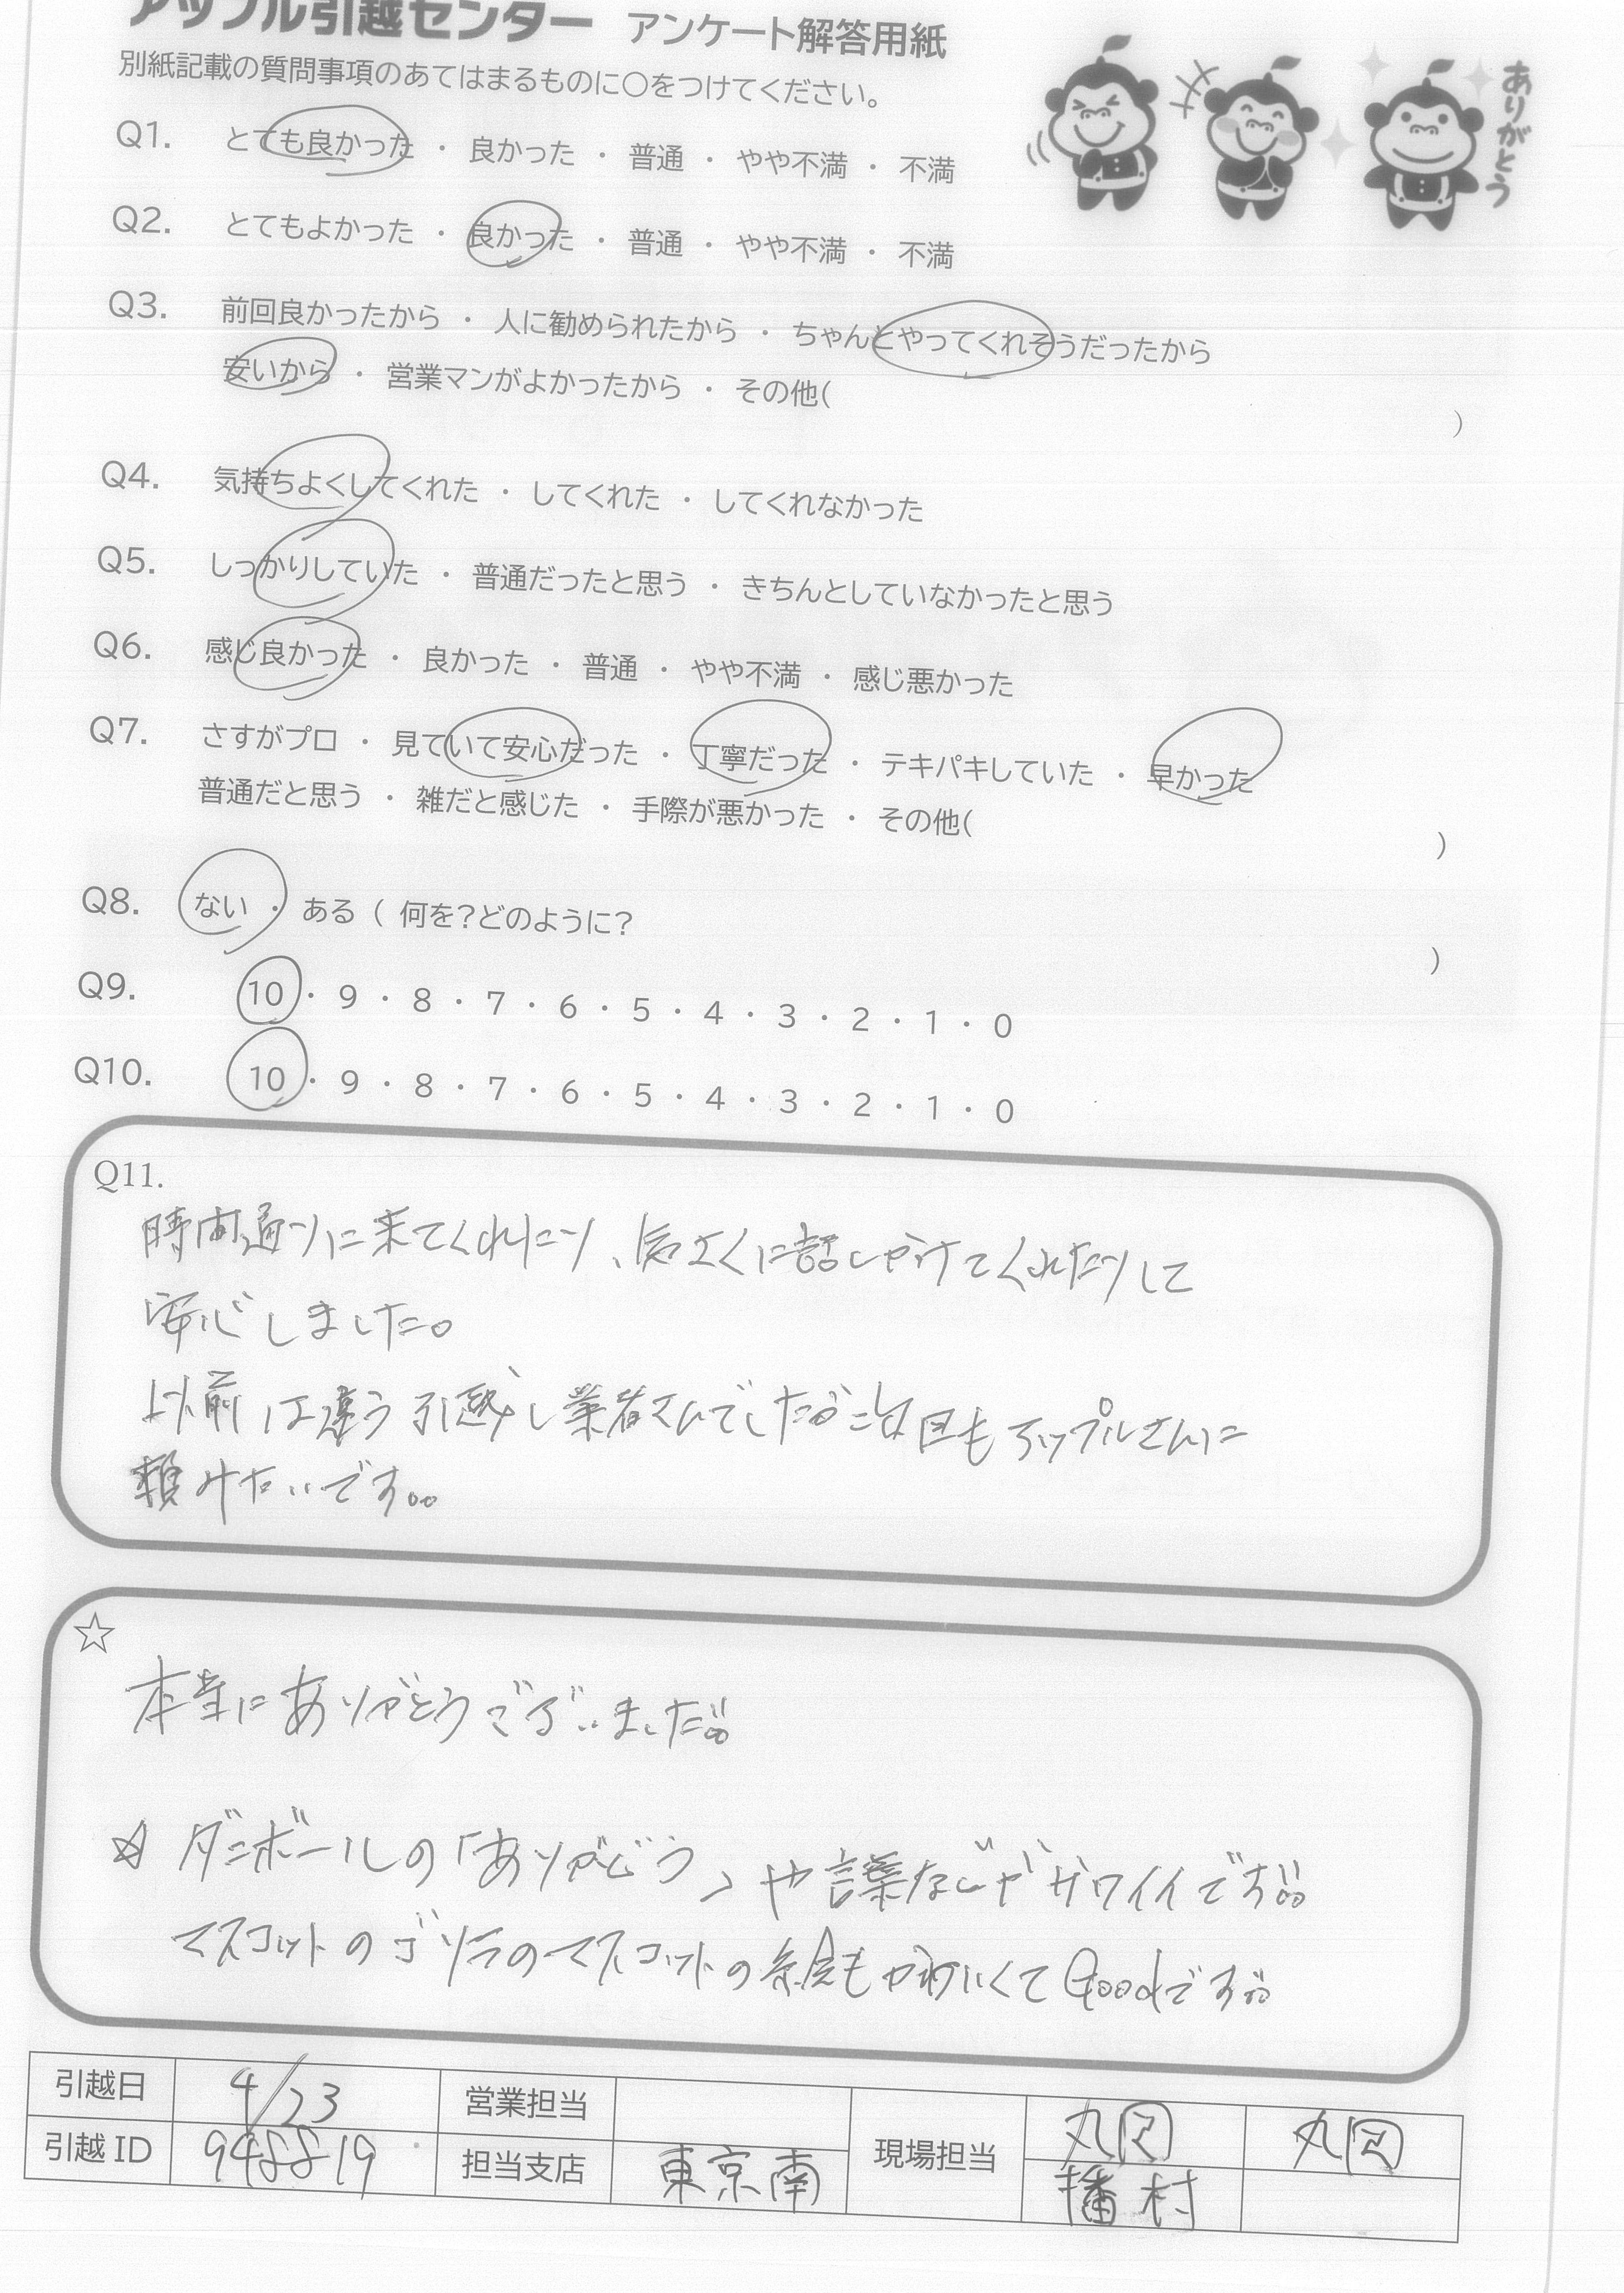 アップル引越センター アンケート解答用紙
別紙記載の質問事項のあてはまるものに○をつけてください。
ありがとう
Q1. とても良かった ・ 良かった ・ 普通 ・ やや不満 ・ 不満
Q2. とてもよかった ・ 良かった ・ 普通 ・ やや不満 ・ 不満
Q3. 前回良かったから ・ 人に勧められたから ・ ちゃんとやってくれそうだったから
安いから ・ 営業マンがよかったから ・ その他( )
Q4. 気持ちよくしてくれた ・ してくれた ・ してくれなかった
Q5. しっかりしていた ・ 普通だったと思う ・ きちんとしていなかったと思う
Q6. 感じ良かった ・ 良かった ・ 普通 ・ やや不満 ・ 感じ悪かった
Q7. さすがプロ ・ 見ていて安心だった ・ 丁寧だった ・ テキパキしていた ・ 早かった
普通だと思う ・ 雑だと感じた ・ 手際が悪かった ・ その他( )
Q8. ない ・ ある ( 何を?どのように? )
Q9. 10 ・ 9 ・ 8 ・ 7 ・ 6 ・ 5 ・ 4 ・ 3 ・ 2 ・ 1 ・ 0
Q10. 10 ・ 9 ・ 8 ・ 7 ・ 6 ・ 5 ・ 4 ・ 3 ・ 2 ・ 1 ・ 0
Q11.
時間通りに来てくれたり、気さくに話しかけてくれたりして
安心しました。
以前は違う引越し業者さんでしたが 目もアップルさんに
頼みたいです。。
☆
本当にありがとうございました!!
☆ ダンボールの「ありがとう」や言葉などがカワイイです!!
マスコットのゴリラのマスコットの絵もかわいくてGoodです!!
引越日 4/23 営業担当 現場担当 丸岡 丸岡
引越ID 9488819 担当支店 東京南 播村